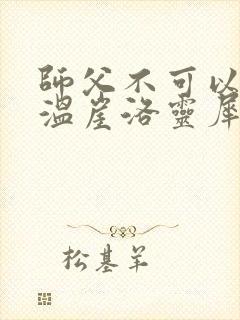 師父不可以
溫崖洛靈犀
松基羊